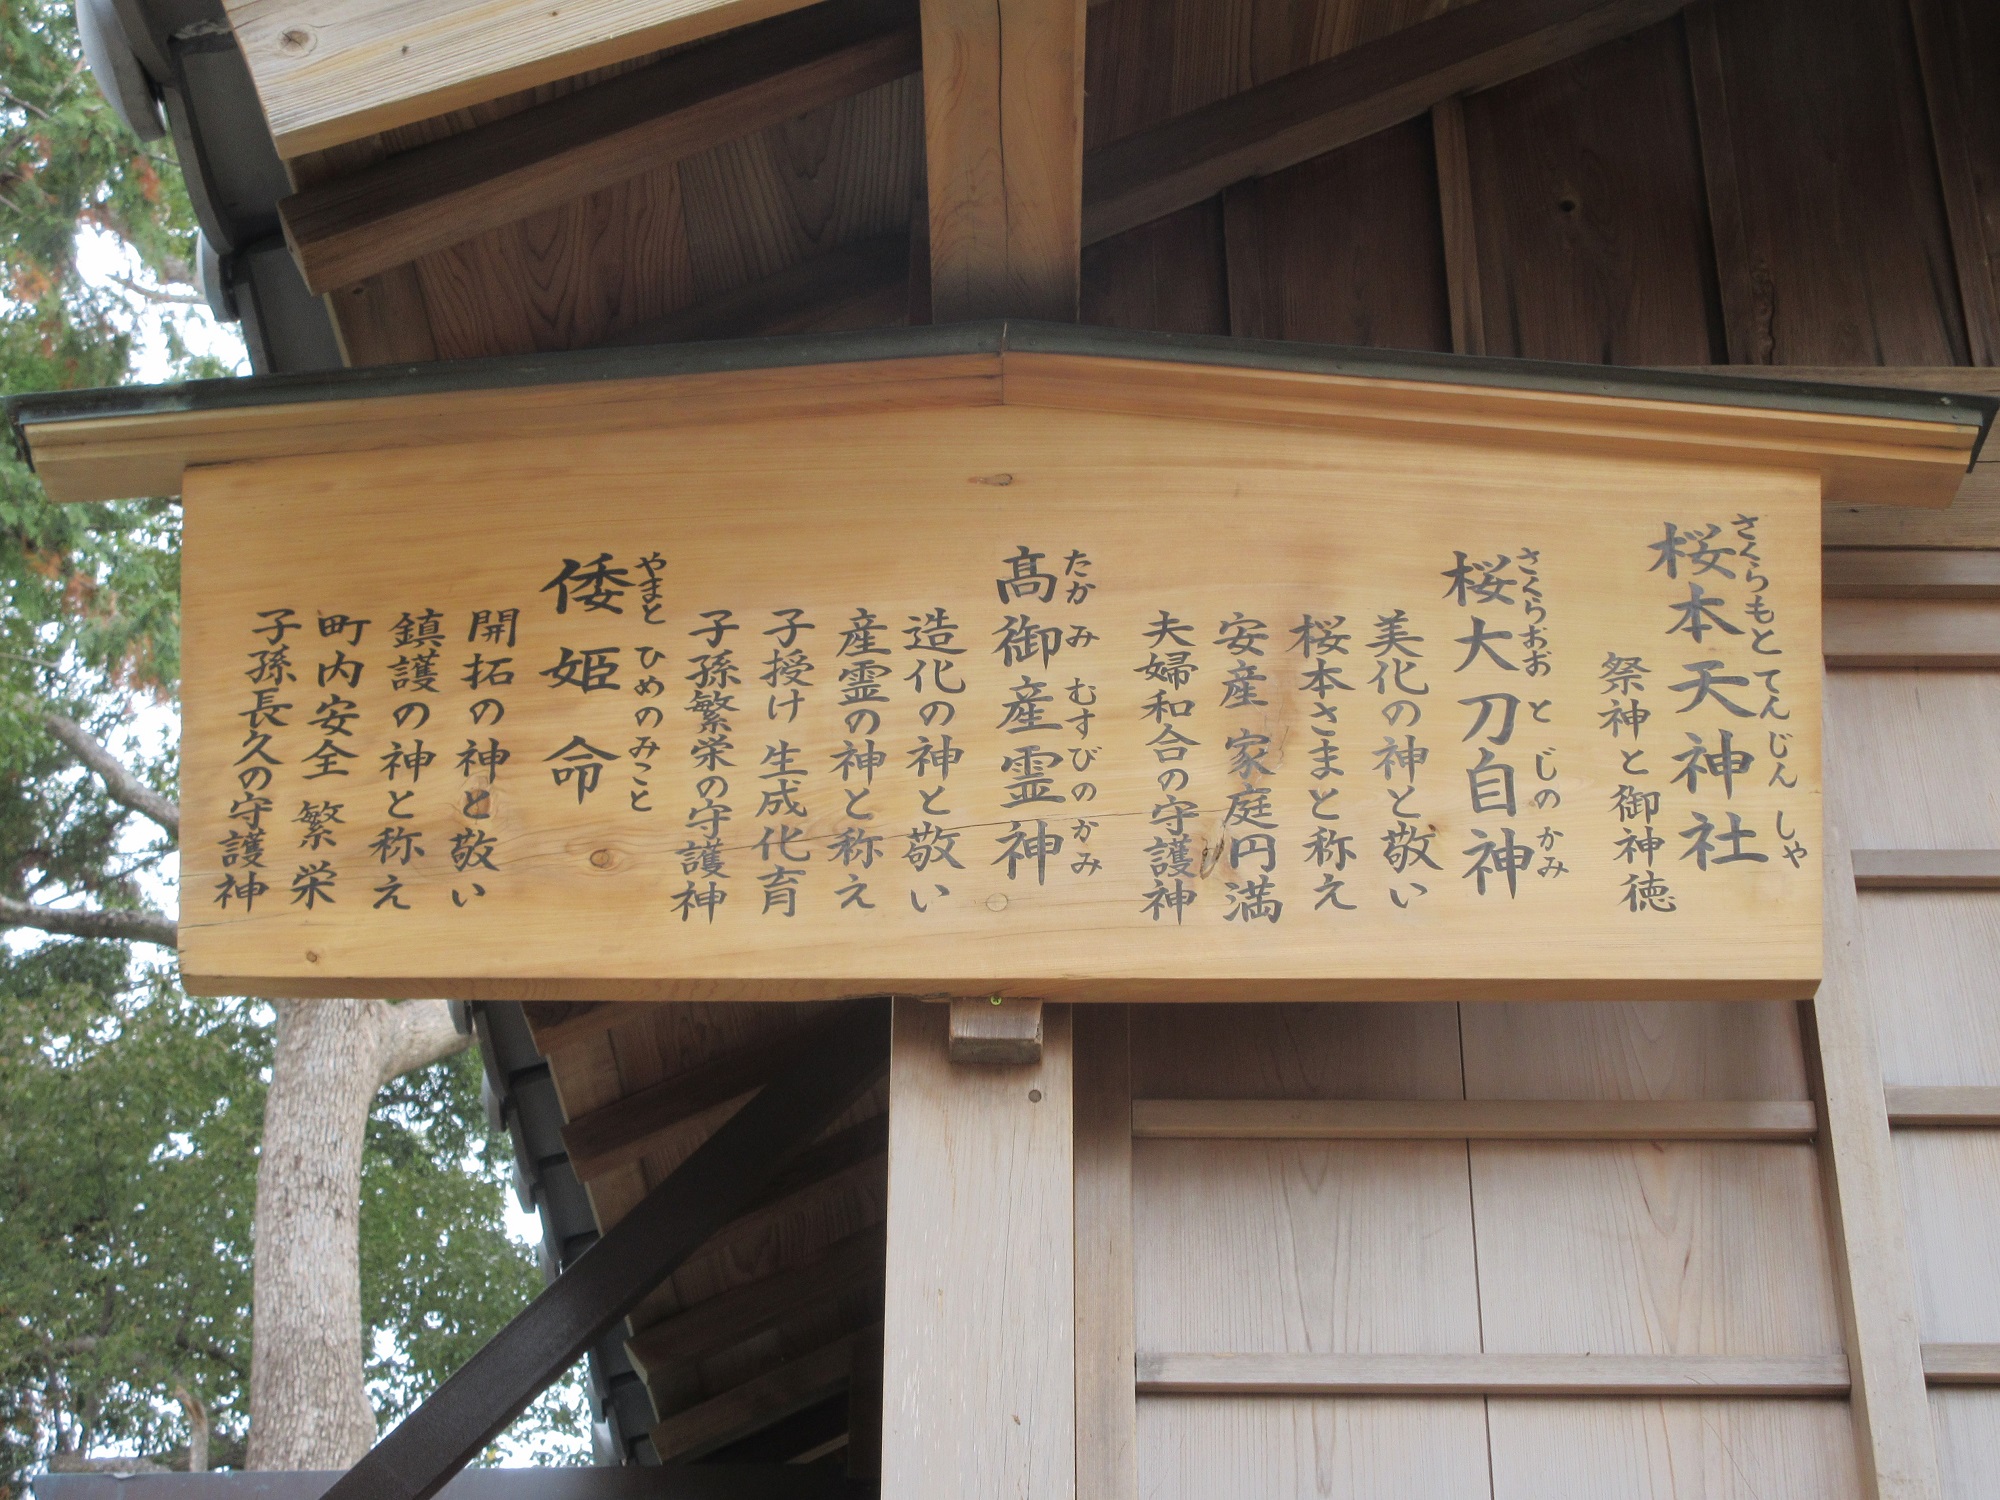 桜本天神社
さくらもとてんじんしゃ
祭神と御神徳
桜大刀自神
さくらおおとじのかみ
美化の神と敬い
桜本さまと称え
安産 家庭円満
夫婦和合の守護神
髙御産霊神
たかみむすびのかみ
造化の神と敬い
産霊の神と称え
子授け 生成化育
子孫繁栄の守護神
倭姫命
やまとひめのみこと
開拓の神と敬い
鎮護の神と称え
町内安全 繁栄
子孫長久の守護神